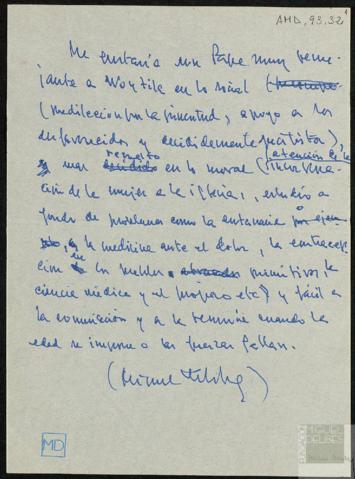 AMD, 93, 32
Me gustaría un Papa muy seme-
jante a Woytila en lo social
(predilección por la juventud, apoyo a los
desfavorecidos y decididamente pacifista),
y mas resuelto en lo moral (atención a la incorpora-
ción de la mujer a la iglesia, estudio a
fondo de problemas como la eutanasia
o la medicina ante el dolor, la contracep-
ción en los pueblos primitivos, la
ciencia médica y el progreso etc) y fácil a
la comunicación y a la renuncia cuando la
edad se imponga o las fuerzas fallan.
(Miguel Delibes)
MD
FUNDACIÓN
MIGUEL
DELIBES